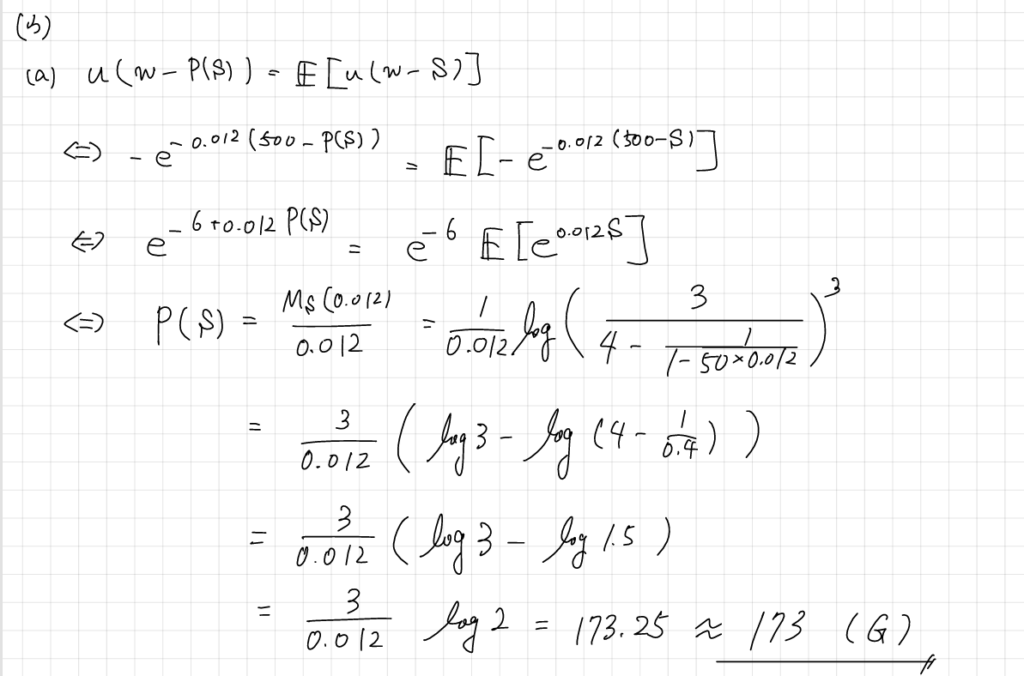 (3)
(a) u(w - P(S)) = 𝔼[u(w - S)]
⇔ -e^{-0.012(500 - P(S))} = 𝔼[-e^{-0.012(500-S)}]
⇔ e^{-6+0.012P(S)} = e^{-6} 𝔼[e^{0.012S}]
⇔ P(S) = \frac{M_S(0.012)}{0.012} = \frac{1}{0.012} log(\frac{3}{4 - \frac{1}{1-50×0.012}})^3
= \frac{3}{0.012} (log 3 - log(4 - \frac{1}{0.4}))
= \frac{3}{0.012} (log 3 - log 1.5)
= \frac{3}{0.012} log 2 = 173.25 ≈ 173 (G)